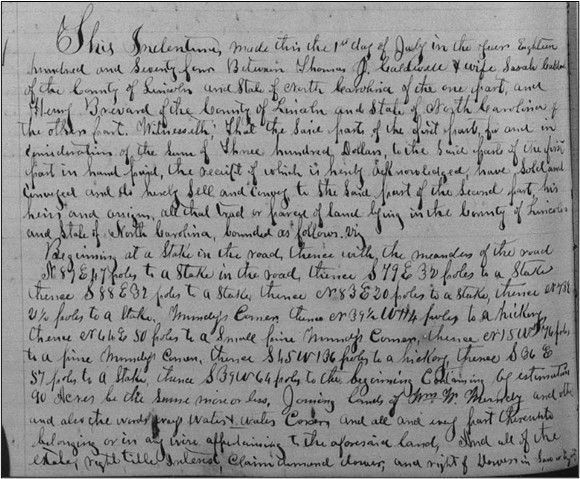 This Indenture, made this the 1st day of July in the year Eighteen
hundred and Seventy four Between Thomas J. Caldwell & wife Sarah
of the County of Lincoln and State of North Carolina of the one part, and
Henry Brevard of the County of Lincoln and State of North Carolina of
the other part. Witnesseth; That the said party of the first part, for and in
consideration of the sum of Three hundred Dollars, to the said party of the first
part in hand paid, the receipt of which is hereby acknowledged, have Sold and
Conveyed and do hereby Sell and Convey to the said part of the Second part his
heirs and assigns, all that tract or parcel of land lying in the County of Lincoln
and State of North Carolina, bounded as follows. Viz
Beginning at a Stake in the road, thence with, the meanders of the road
N 89 E 47 poles to a Stake in the road, thence S 79 E 32 poles to a Stake
thence S 88 E 32 poles to a Stake, thence N 83 E 20 poles to a Stake, thence
21½ poles to a Stake, Mundys Corner, thence N 39½ W 114 poles to a hickory,
thence N 46 E 50 poles to a Small pine Mundys Corner, thence N 15 W 76 poles
to a pine Mundys Corner, thence S 45 W 136 poles to a hickory, thence S 36 E
57 poles to a Stake, thence S 39 W 64 poles to the beginning Containing by estimation
90 Acres be the same more or less, Joining lands of Wm W. Mundy and
and also the woods ways Waters & Water Courses and all and every part thereunto
belonging or in any wise appertaining to the aforesaid land, And all of the
estate, right title Interest, Claim demand dower, and right of Dower in